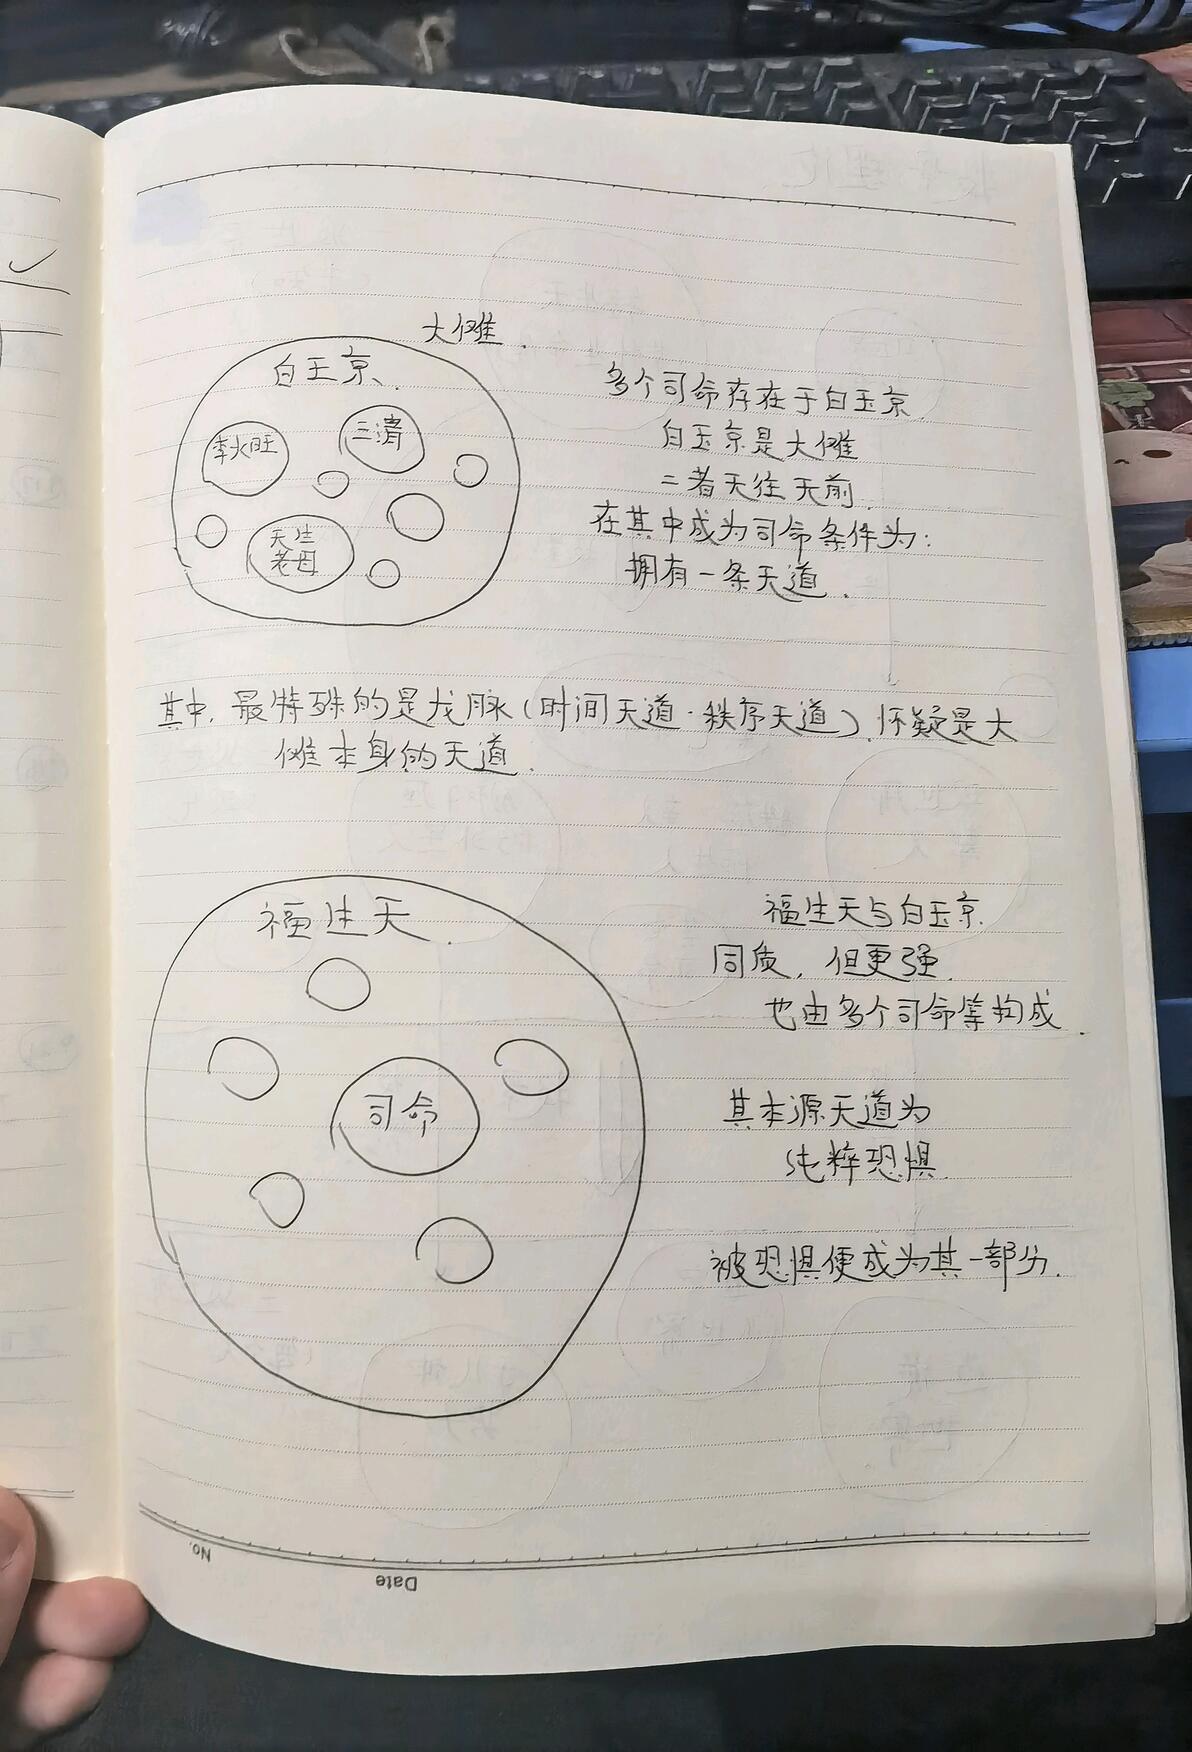 大傩
白玉京
李火旺
三清
无生
老母
多个司命存在于白玉京
白玉京是大傩
在其中成为司命条件为:
拥有一条天道.
其中,最特殊的是龙脉(时间天道·秩序天道),怀疑是大
傩本身的天道.
福生天.
司命
福生天与白玉京
同质,但更强.
也由多个司命等构成.
其本源天道为
纯粹恐惧.
被恐惧便成为其一部分.
No.
Date